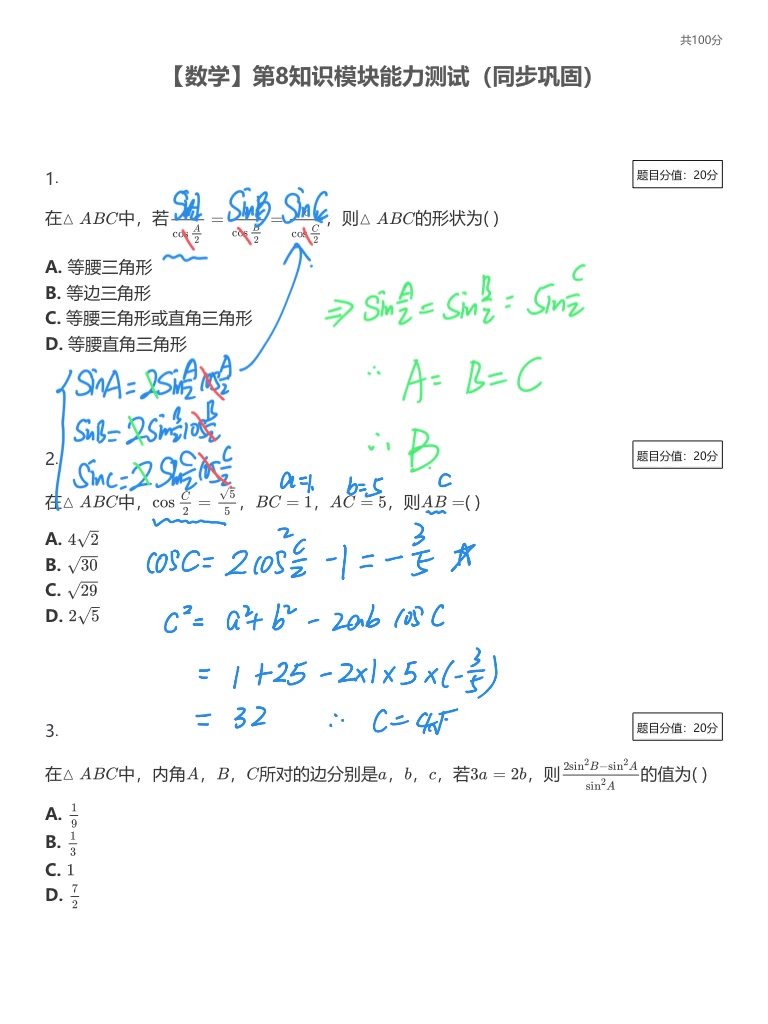 共100分
【数学】第8知识模块能力测试（同步巩固）
1.
题目分值：20分
在△ABC中，若 sinA/cos A/2 = sinB/cos B/2 = sinC/cos C/2，则△ABC的形状为( )
A. 等腰三角形
B. 等边三角形
C. 等腰三角形或直角三角形
D. 等腰直角三角形
⇒ sin A/2 = sin B/2 = sin C/2
∴ A = B = C
∴ B
sinA = 2sin A/2 cos A/2
sinB = 2sin B/2 cos B/2
sinC = 2sin C/2 cos C/2
2.
题目分值：20分
a=1 b=5 c
在△ABC中，cos C/2 = √5/5，BC = 1，AC = 5，则AB =( )
A. 4√2
B. √30
C. √29
D. 2√5
cosC = 2cos² C/2 - 1 = - 3/5
c² = a² + b² - 2ab cosC
= 1 + 25 - 2×1×5×(-3/5)
= 32 ∴ C = 4√
3.
题目分值：20分
在△ABC中，内角A，B，C所对的边分别是a，b，c，若3a = 2b，则 2sin²B−sin²A/sin²A 的值为( )
A. 1/9
B. 1/3
C. 1
D. 7/2